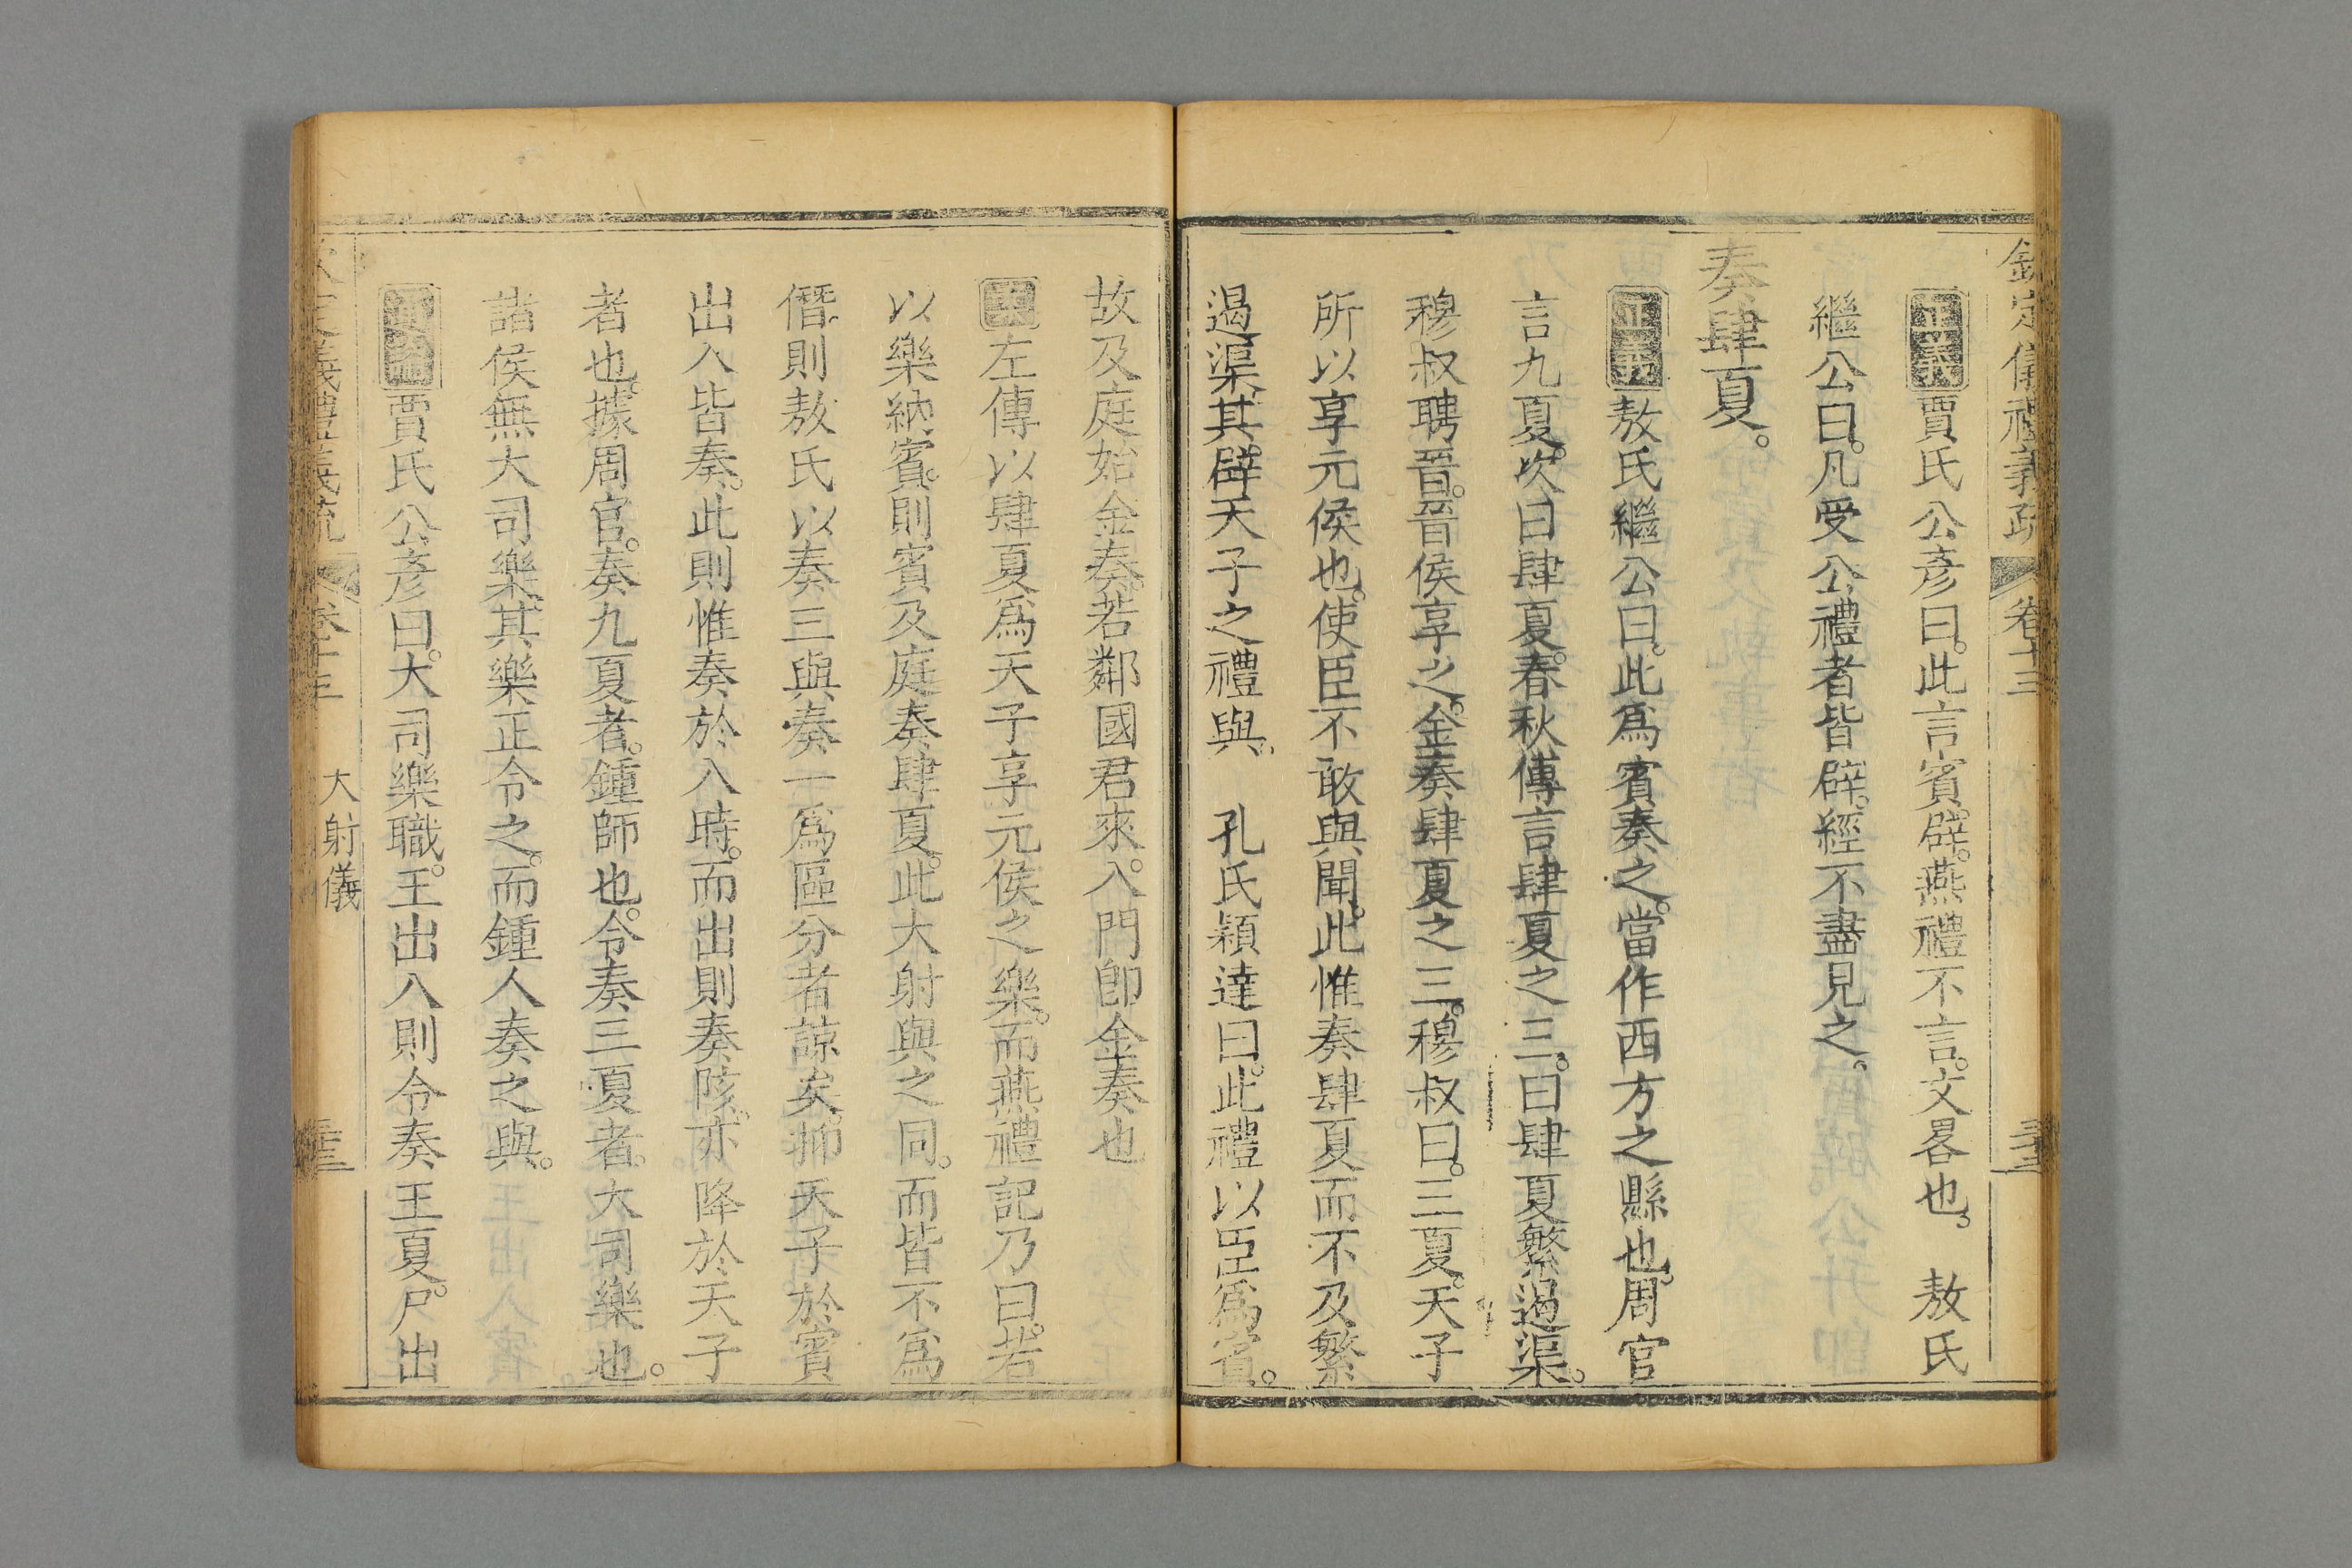 欽定儀禮義疏 卷十三
正義賈氏公彥曰。此言賓。辟。燕禮不言。文畧也。 敖氏
繼公曰。凡受公禮者皆辟。經不盡見之。
奏肆夏。
正義敖氏繼公曰。此爲賓奏之。當作西方之縣也。周官
言九夏。次曰肆夏。春秋傳言肆夏之三。曰肆夏繁遏渠。
穆叔聘晉。晉侯享之。金奏肆夏之三。穆叔曰。三夏。天子
所以享元侯也。使臣不敢與聞。此惟奏肆夏而不及繁
遏渠。其辟天子之禮與。 孔氏穎達曰。此禮以臣爲賓。
故及庭始金奏。若鄰國君來。入門卽金奏也
案左傳以肆夏爲天子享元侯之樂。而燕禮記乃曰。若
以樂納賓。則賓及庭奏肆夏。此大射與之同。而皆不爲
僭。則敖氏以奏三與奏一爲區分者諒矣。抑天子於賓
出入皆奏。此則惟奏於入時。而出則奏陔。亦降於天子
者也。據周官。奏九夏者。鍾師也。令奏三夏者。大司樂也。
諸侯無大司樂。其樂正令之。而鍾人奏之與。
賈氏公彥曰。大司樂職。王出入則令奏王夏。尸出
義禮義疏 卷十三 大射儀